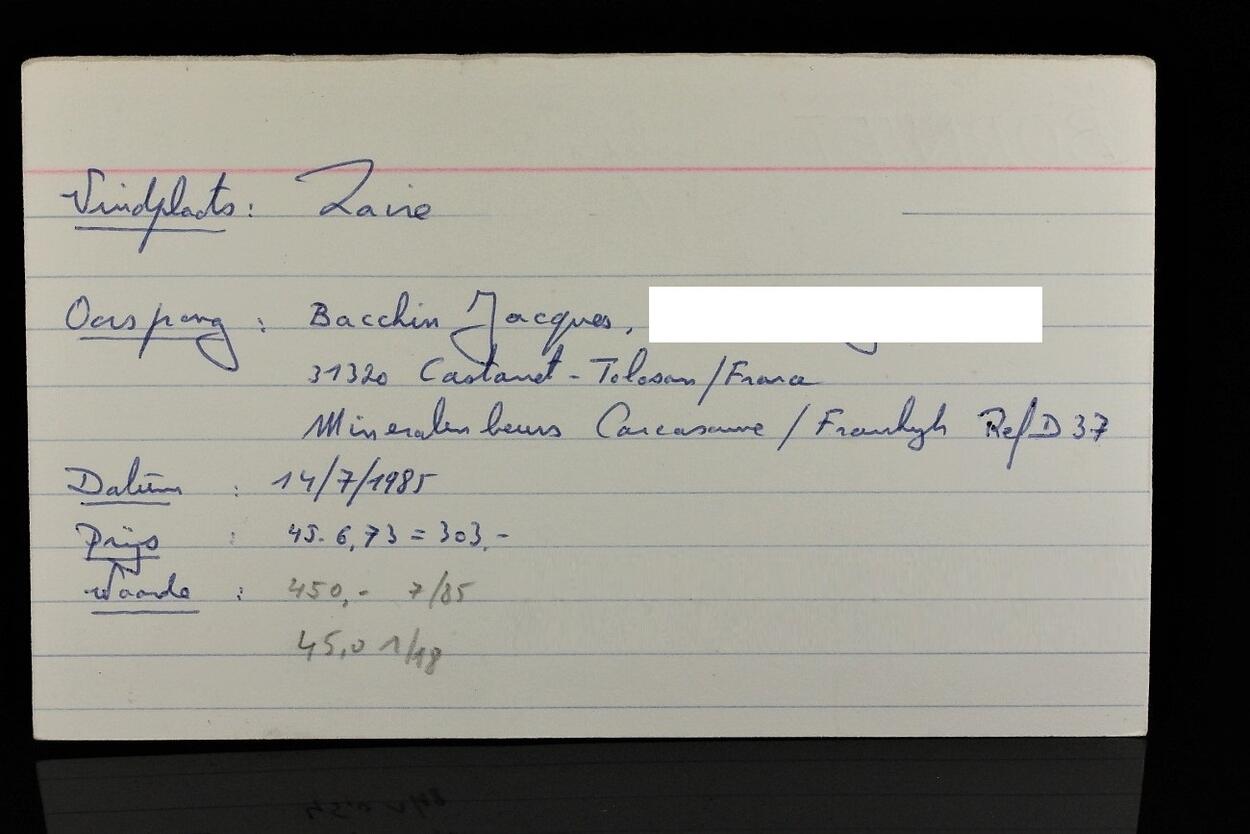 Vindplaats: Zaïre
Oorsprong: Bacchin Jacques,
31320 Castanet-Tolosan/France
Mineralenbeurs Carcasonne / Frankrijk Ref D 37
Datum : 14/7/1985
Prijs : 45.6,73 = 303,-
Waarde : 450,- 7/85
45,0 1/18